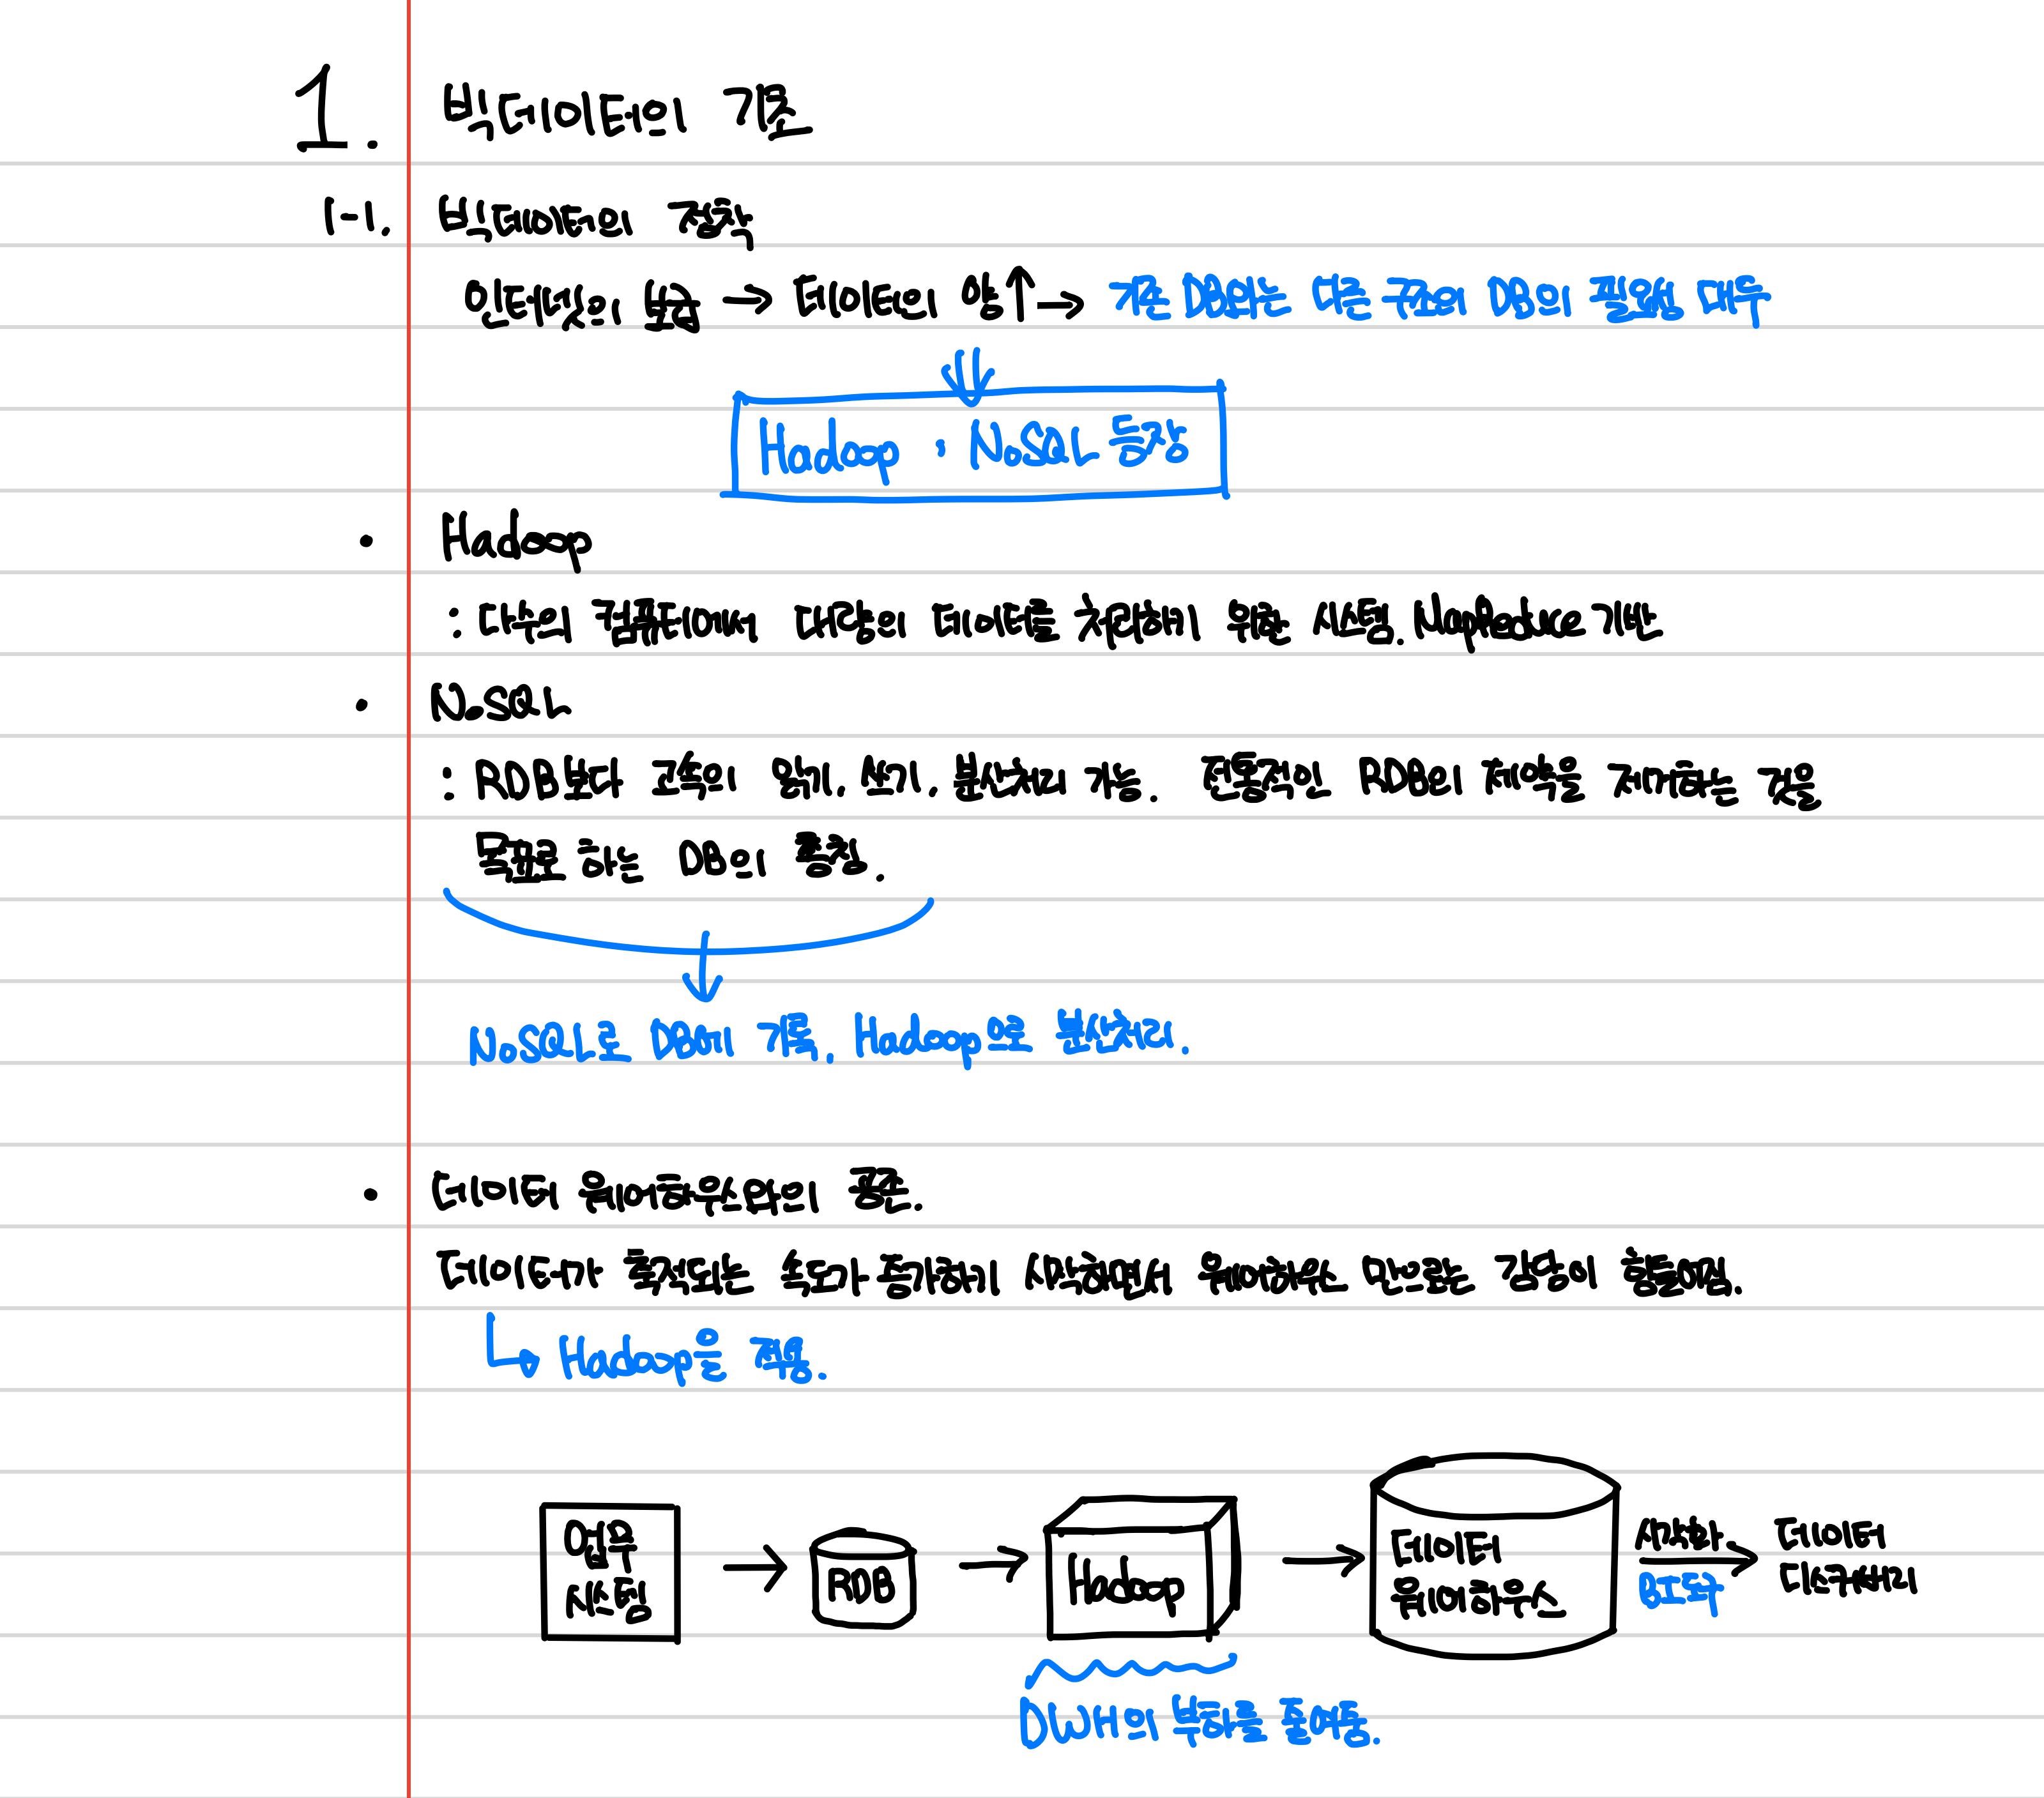 1. 빅데이터의 기초
1-1. 빅데이터의 정착
인터넷의 보급 → 데이터의 양↑ → 기존 DB와는 다른 구조의 DB의 필요성 대두
Hadoop · NoSQL 등장
• Hadoop
: 다수의 컴퓨터에서 대량의 데이터를 처리하기 위한 시스템. MapReduce 기반
• NoSQL
: RDB보다 고속의 읽기, 쓰기, 분산처리 가능. 전통적인 RDB의 제약을 제거하는 것을
목표로 하는 DB의 총칭.
NoSQL로 DB에 기록, Hadoop으로 분산처리.
• 데이터 웨어하우스와의 공존.
데이터가 축적되는 속도가 증가하기 시작하면서 웨어하우스 만으로는 감당이 힘들어짐.
↳ Hadoop을 적용.
업무
시스템
→ RDB → Hadoop →
데이터
웨어하우스
시각화
BI도구
데이터
디스커버리
DW에의 부하를 줄여줌.